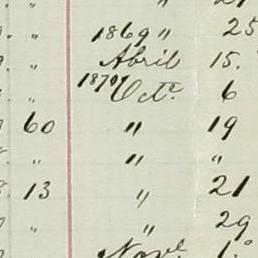 1869 " 25
" Abril 15.
1870 Octe 6
60 " 19
" " "
13 " 21
" " 29
Nove 1.o